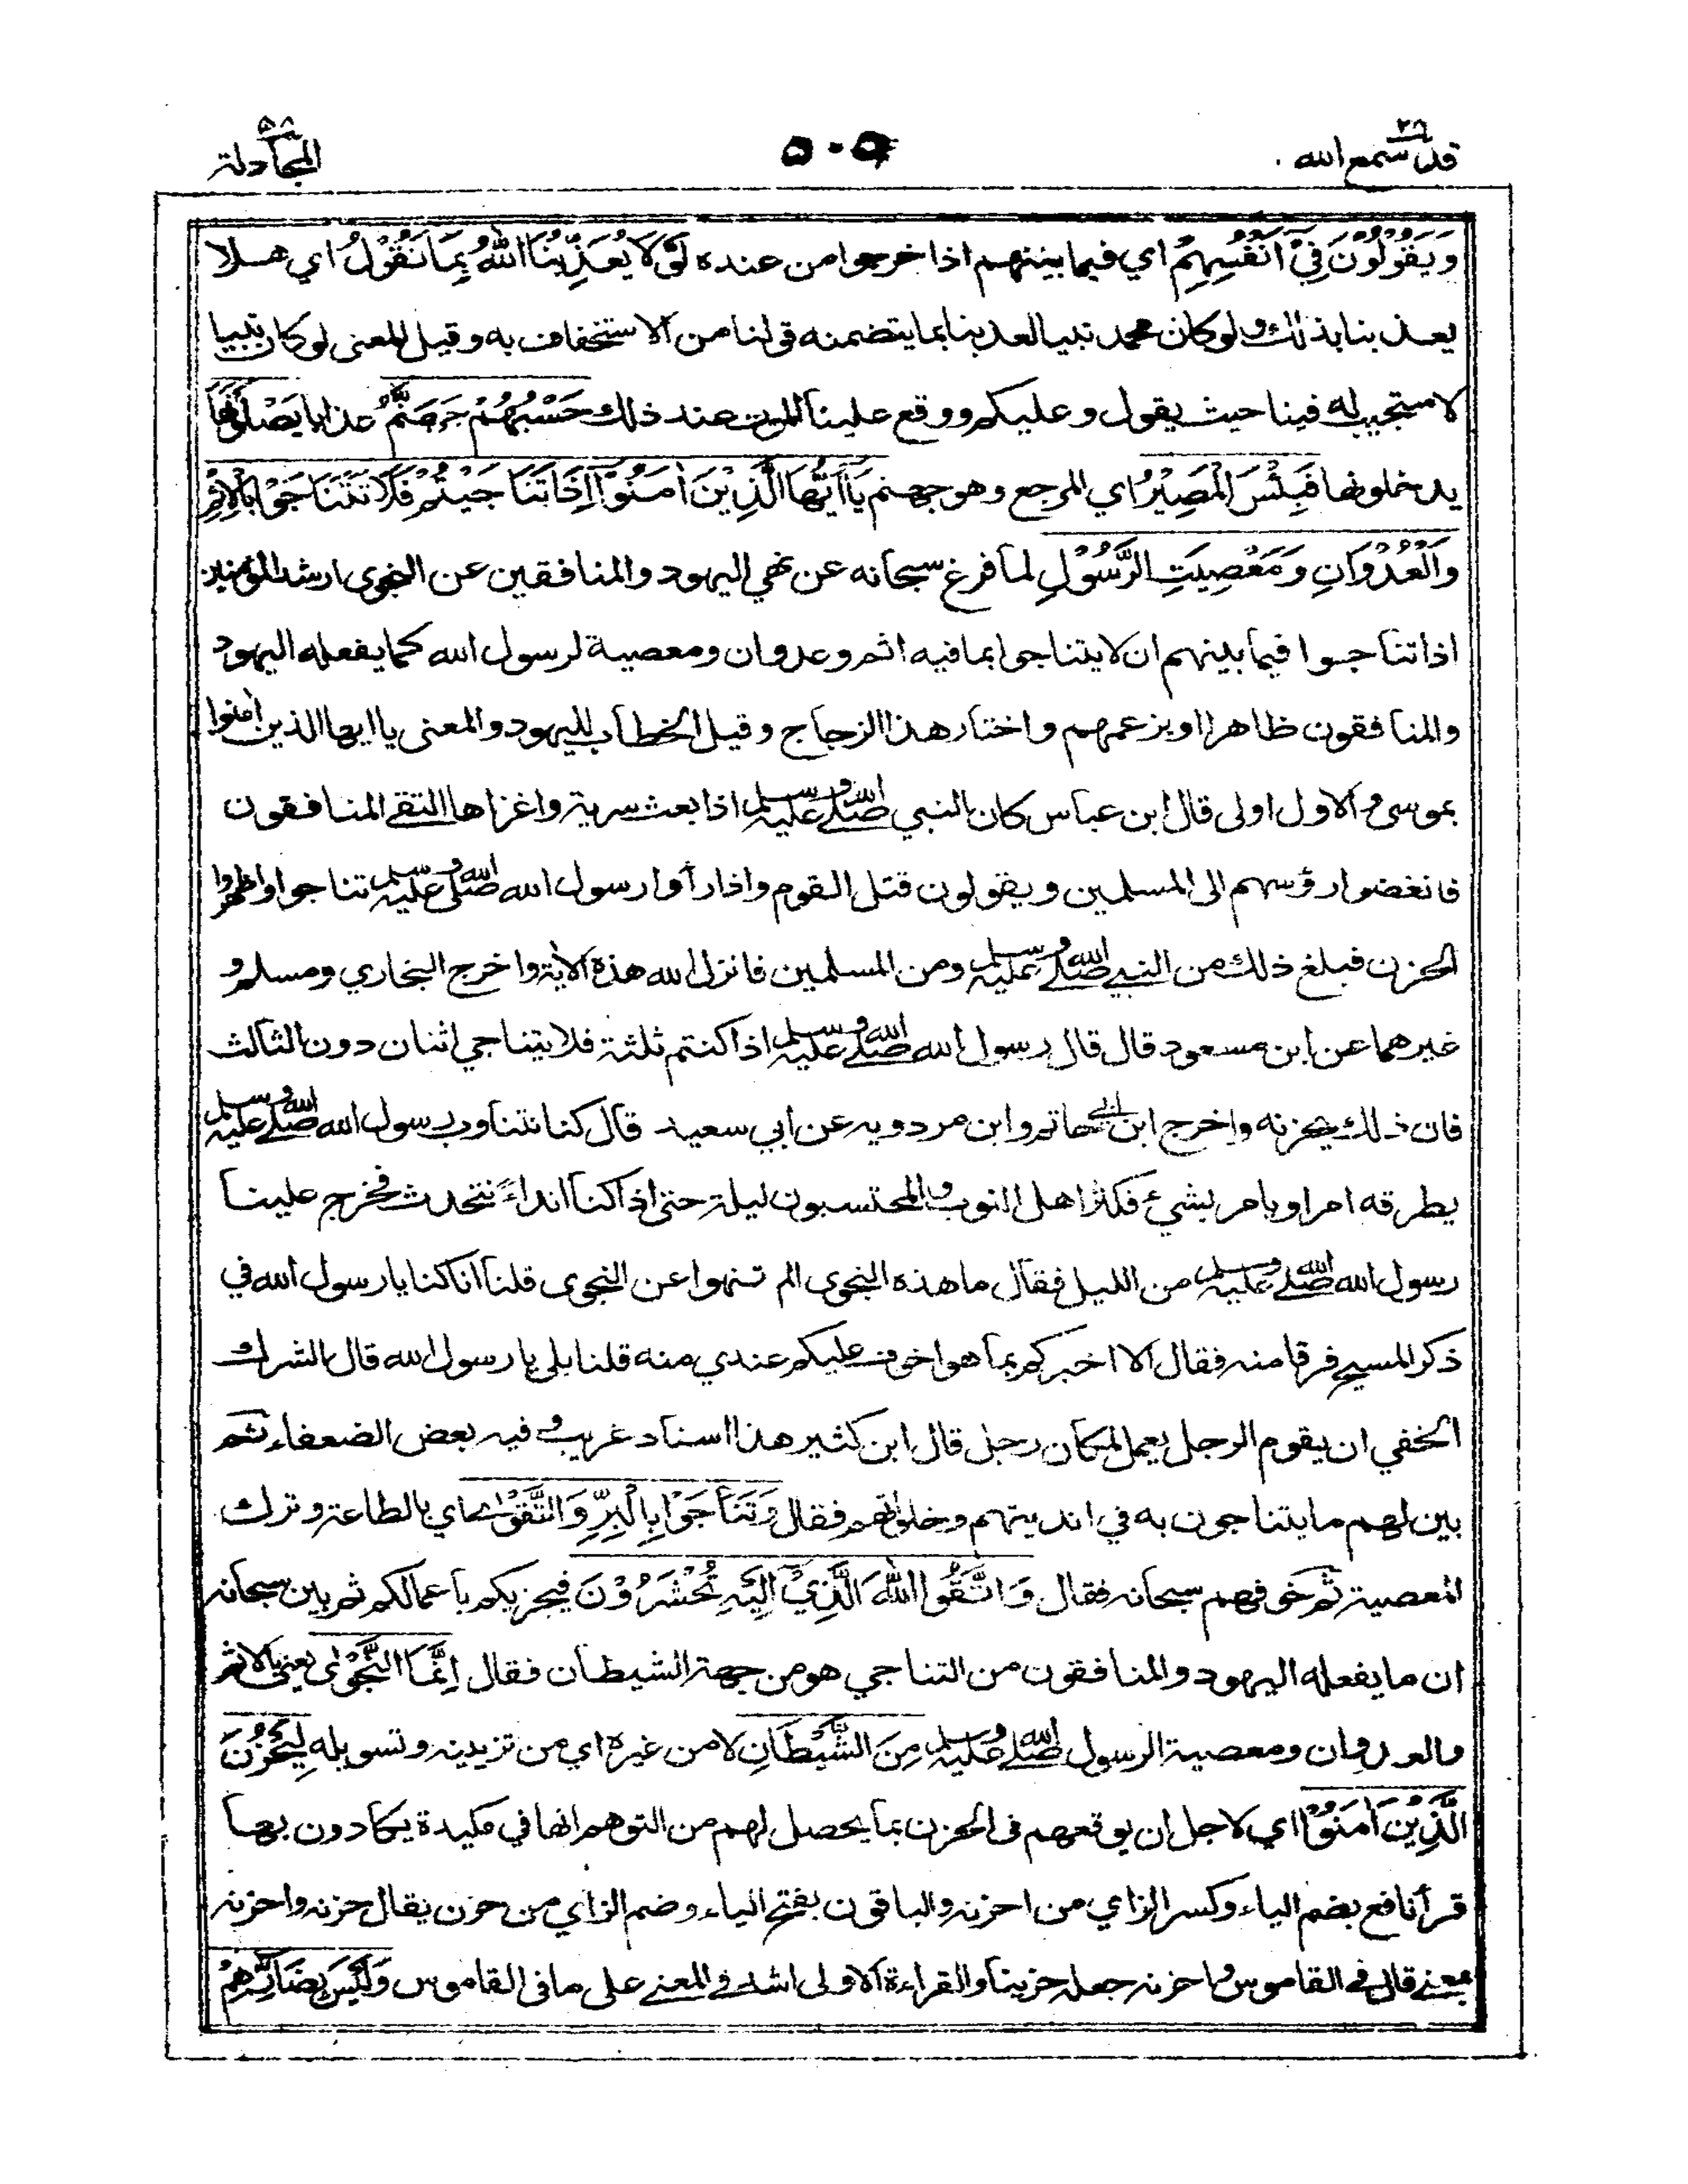 قد سمع الله ٢٨
٥٠٥
المجادلة ٥٨
وَيَقُوْلُوْنَ فِيْٓ اَنْفُسِهِمْ اي فيما بينهم اذا خرجوا من عنده لَوْلَا يُعَذِّبُنَا اللّٰهُ بِمَا نَقُوْلُ اي هلا
يعذبنا بذلك ولو كان محمد نبيا لعذبنا بما يتضمنه قولنا من الاستخفاف به وقيل المعنى لو كان نبيا
لاستجيب له فينا حيث يقول وعليكم ووقع علينا الموت عند ذلك حَسْبُهُمْ جَهَنَّمُ عذابا يَصْلَوْنَهَا
يدخلونها فَبِئْسَ الْمَصِيْرُ اي المرجع وهو جهنم يَآاَيُّهَا الَّذِيْنَ اٰمَنُوْٓا اِذَا تَنَاجَيْتُمْ فَلَا تَتَنَاجَوْا بِالْاِثْمِ
وَالْعُدْوَانِ وَمَعْصِيَتِ الرَّسُوْلِ لما فرغ سبحانه عن نهي اليهود والمنافقين عن النجوى ارشد المؤمنين
اذا تناجوا فيما بينهم ان لا يتناجوا بما فيه اثم وعدوان ومعصية لرسول الله كما يفعله اليهود
والمنافقون ظاهرا او بزعمهم واختار هذا الزجاج وقيل الخطاب لليهود والمعنى يا ايها الذين اٰمنوا
بموسى والاول اولى قال ابن عباس كان النبي صلى الله عليه وسلم اذا بعث سرية واغزاها التقى المنافقون
فانغضوا رؤسهم الى المسلمين ويقولون قتل القوم واذا رأوا رسول الله صلى الله عليه وسلم تناجوا واظهروا
الحزن فبلغ ذلك من النبي صلى الله عليه وسلم ومن المسلمين فانزل الله هذه الاية واخرج البخاري ومسلم و
غيرهما عن ابن مسعود قال قال رسول الله صلى الله عليه وسلم اذا كنتم ثلثة فلا يتناجى اثنان دون الثالث
فان ذلك يحزنه واخرج ابن ابي حاتم وابن مردويه عن ابي سعيد قال كنا نتناوب رسول الله صلى الله عليه وسلم
يطرقه امر او يامر بشئ فكثر اهل النوب والمحتسبون ليلة حتى اذا كنا انداءً نتحدث فخرج علينا
رسول الله صلى الله عليه وسلم من الليل فقال ما هذه النجوى الم تنهوا عن النجوى قلنا انا كنا يا رسول الله في
ذكر المسيح فرقا منه فقال الا اخبركم بما هو اخوف عليكم عندي منه قلنا بلى يا رسول الله قال الشرك
الخفي ان يقوم الرجل يعمل لمكان رجل قال ابن كثير هذا اسناد غريب وفيه بعض الضعفاء ثم
بين لهم ما يتناجون به في انديتهم وخلواتهم فقال وَتَنَاجَوْا بِالْبِرِّ وَالتَّقْوٰى اي بالطاعة وترك
المعصية ثم خوفهم سبحانه فقال وَاتَّقُوا اللّٰهَ الَّذِيْٓ اِلَيْهِ تُحْشَرُوْنَ فيجزيكم باعمالكم ثم بين سبحانه
ان ما يفعله اليهود والمنافقون من التناجي هو من جهة الشيطان فقال اِنَّمَا النَّجْوٰى يعني بالاثم
والعدوان ومعصية الرسول صلى الله عليه وسلم مِنَ الشَّيْطَانِ لا من غيره اي من تزيينه وتسويله لِيَحْزُنَ
الَّذِيْنَ اٰمَنُوْا اي لاجل ان يوقعهم فى الحزن بما يحصل لهم من التوهم انها في مكيدة يكادون بها
قرأ نافع بضم الياء وكسر الزاي من احزنه والباقون بفتح الياء وضم الزاي من حزن يقال حزنه واحزنه
بمعنى قال في القاموس واحزنه جعله حزينا والقراءة الاولى اشد في المعنى على ما فى القاموس وَلَيْسَ بِضَآرِّهِمْ